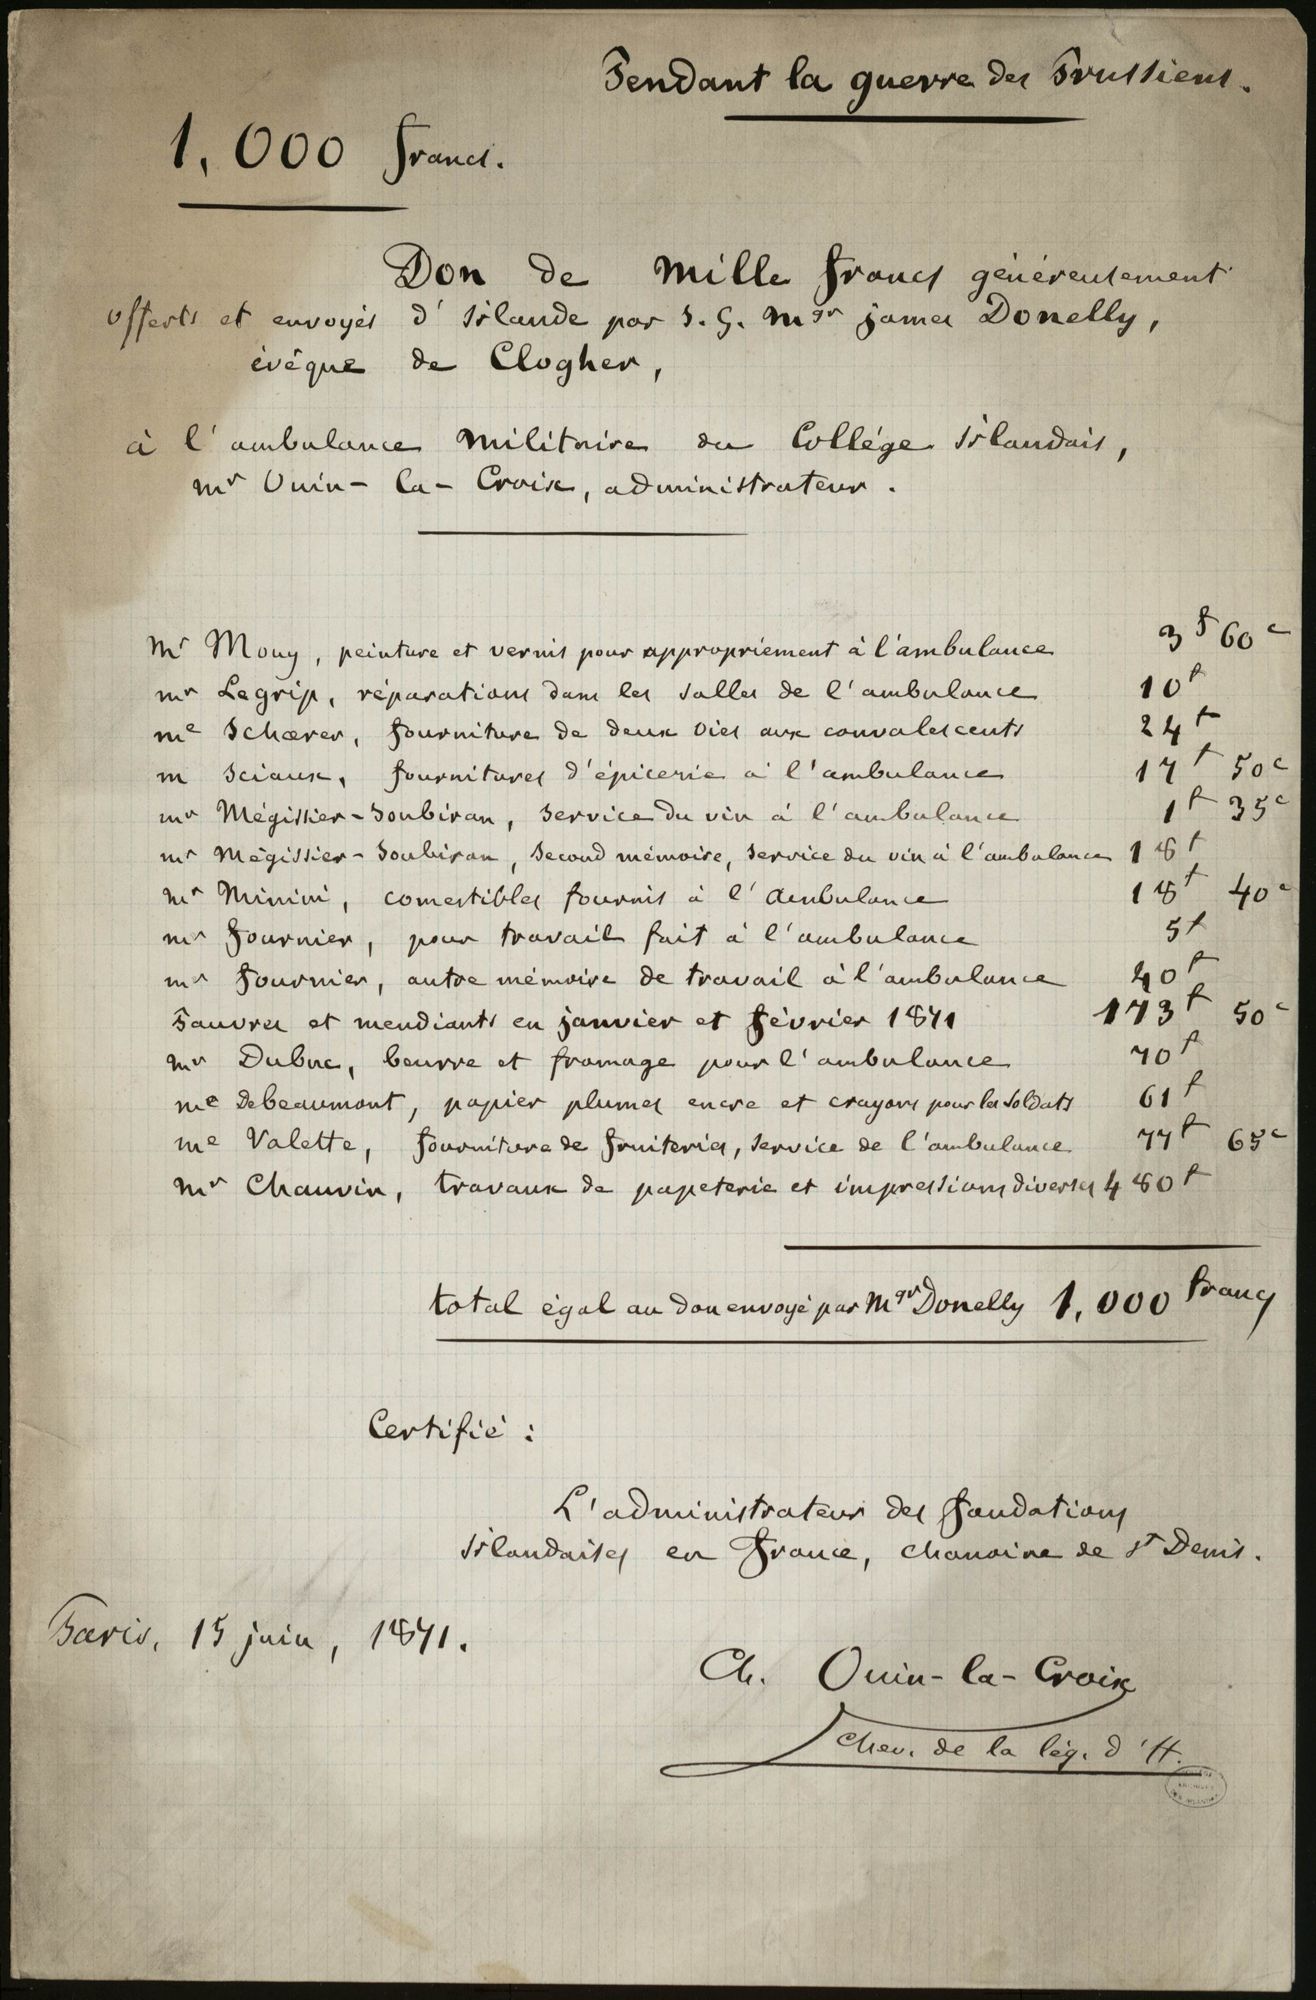 Pendant la guerre des Prussiens.
1,000 francs.
Don de mille francs généreusement
offerts et envoyés d'Irlande par S. G. Mgr james Donelly,
évêque de Clogher,
à l'ambulance militaire du Collége irlandais,
mr Ouin-la-Croix, administrateur.
Mr Mouy, peinture et vernis pour appropriement à l'ambulance 3f 60c
mr Legrip, réparations dans les salles de l'ambulance 10f
me Schœrer, fourniture de deux oies aux convalescents 24f
m Sciaux, fournitures d'épicerie à l'ambulance 17f 50c
mr Mégissier-Soubiran, service du vin à l'ambulance 1f 35c
mr Mégissier-Soubiran, second mémoire, service du vin à l'ambulance 18f
mr Minini, comestibles fournis à l'ambulance 18f 40c
mr Fournier, pour travail fait à l'ambulance 5f
mr Fournier, autre mémoire de travail à l'ambulance 40f
Pauvres et mendiants en janvier et février 1871 173f 50c
mr Dubuc, beurre et fromage pour l'ambulance 70f
me Debeaumont, papier plumes encre et crayons pour les soldats 61f
me Valette, fourniture de fruiteries, service de l'ambulance 77f 65c
mr Chauvin, travaux de papeterie et impressions diverses 480f
total égal au don envoyé par Mgr Donelly 1,000 francs
Certifié :
L'administrateur des fondations
irlandaises en France, chanoine de St Denis.
Paris, 15 juin, 1871.
Ch. Ouin-la-Croix
chev. de la lég. d'H.